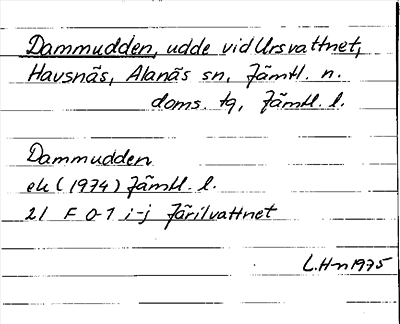 Dammudden, udde vid Ursvattnet,
Havsnäs, Alanäs sn, Jämtl. n.
doms. tg, Jämtl. l.
Dammudden
ek (1974) Jämtl. l.
21 F 0-1 i-j Järilvattnet
L.H-n 1975